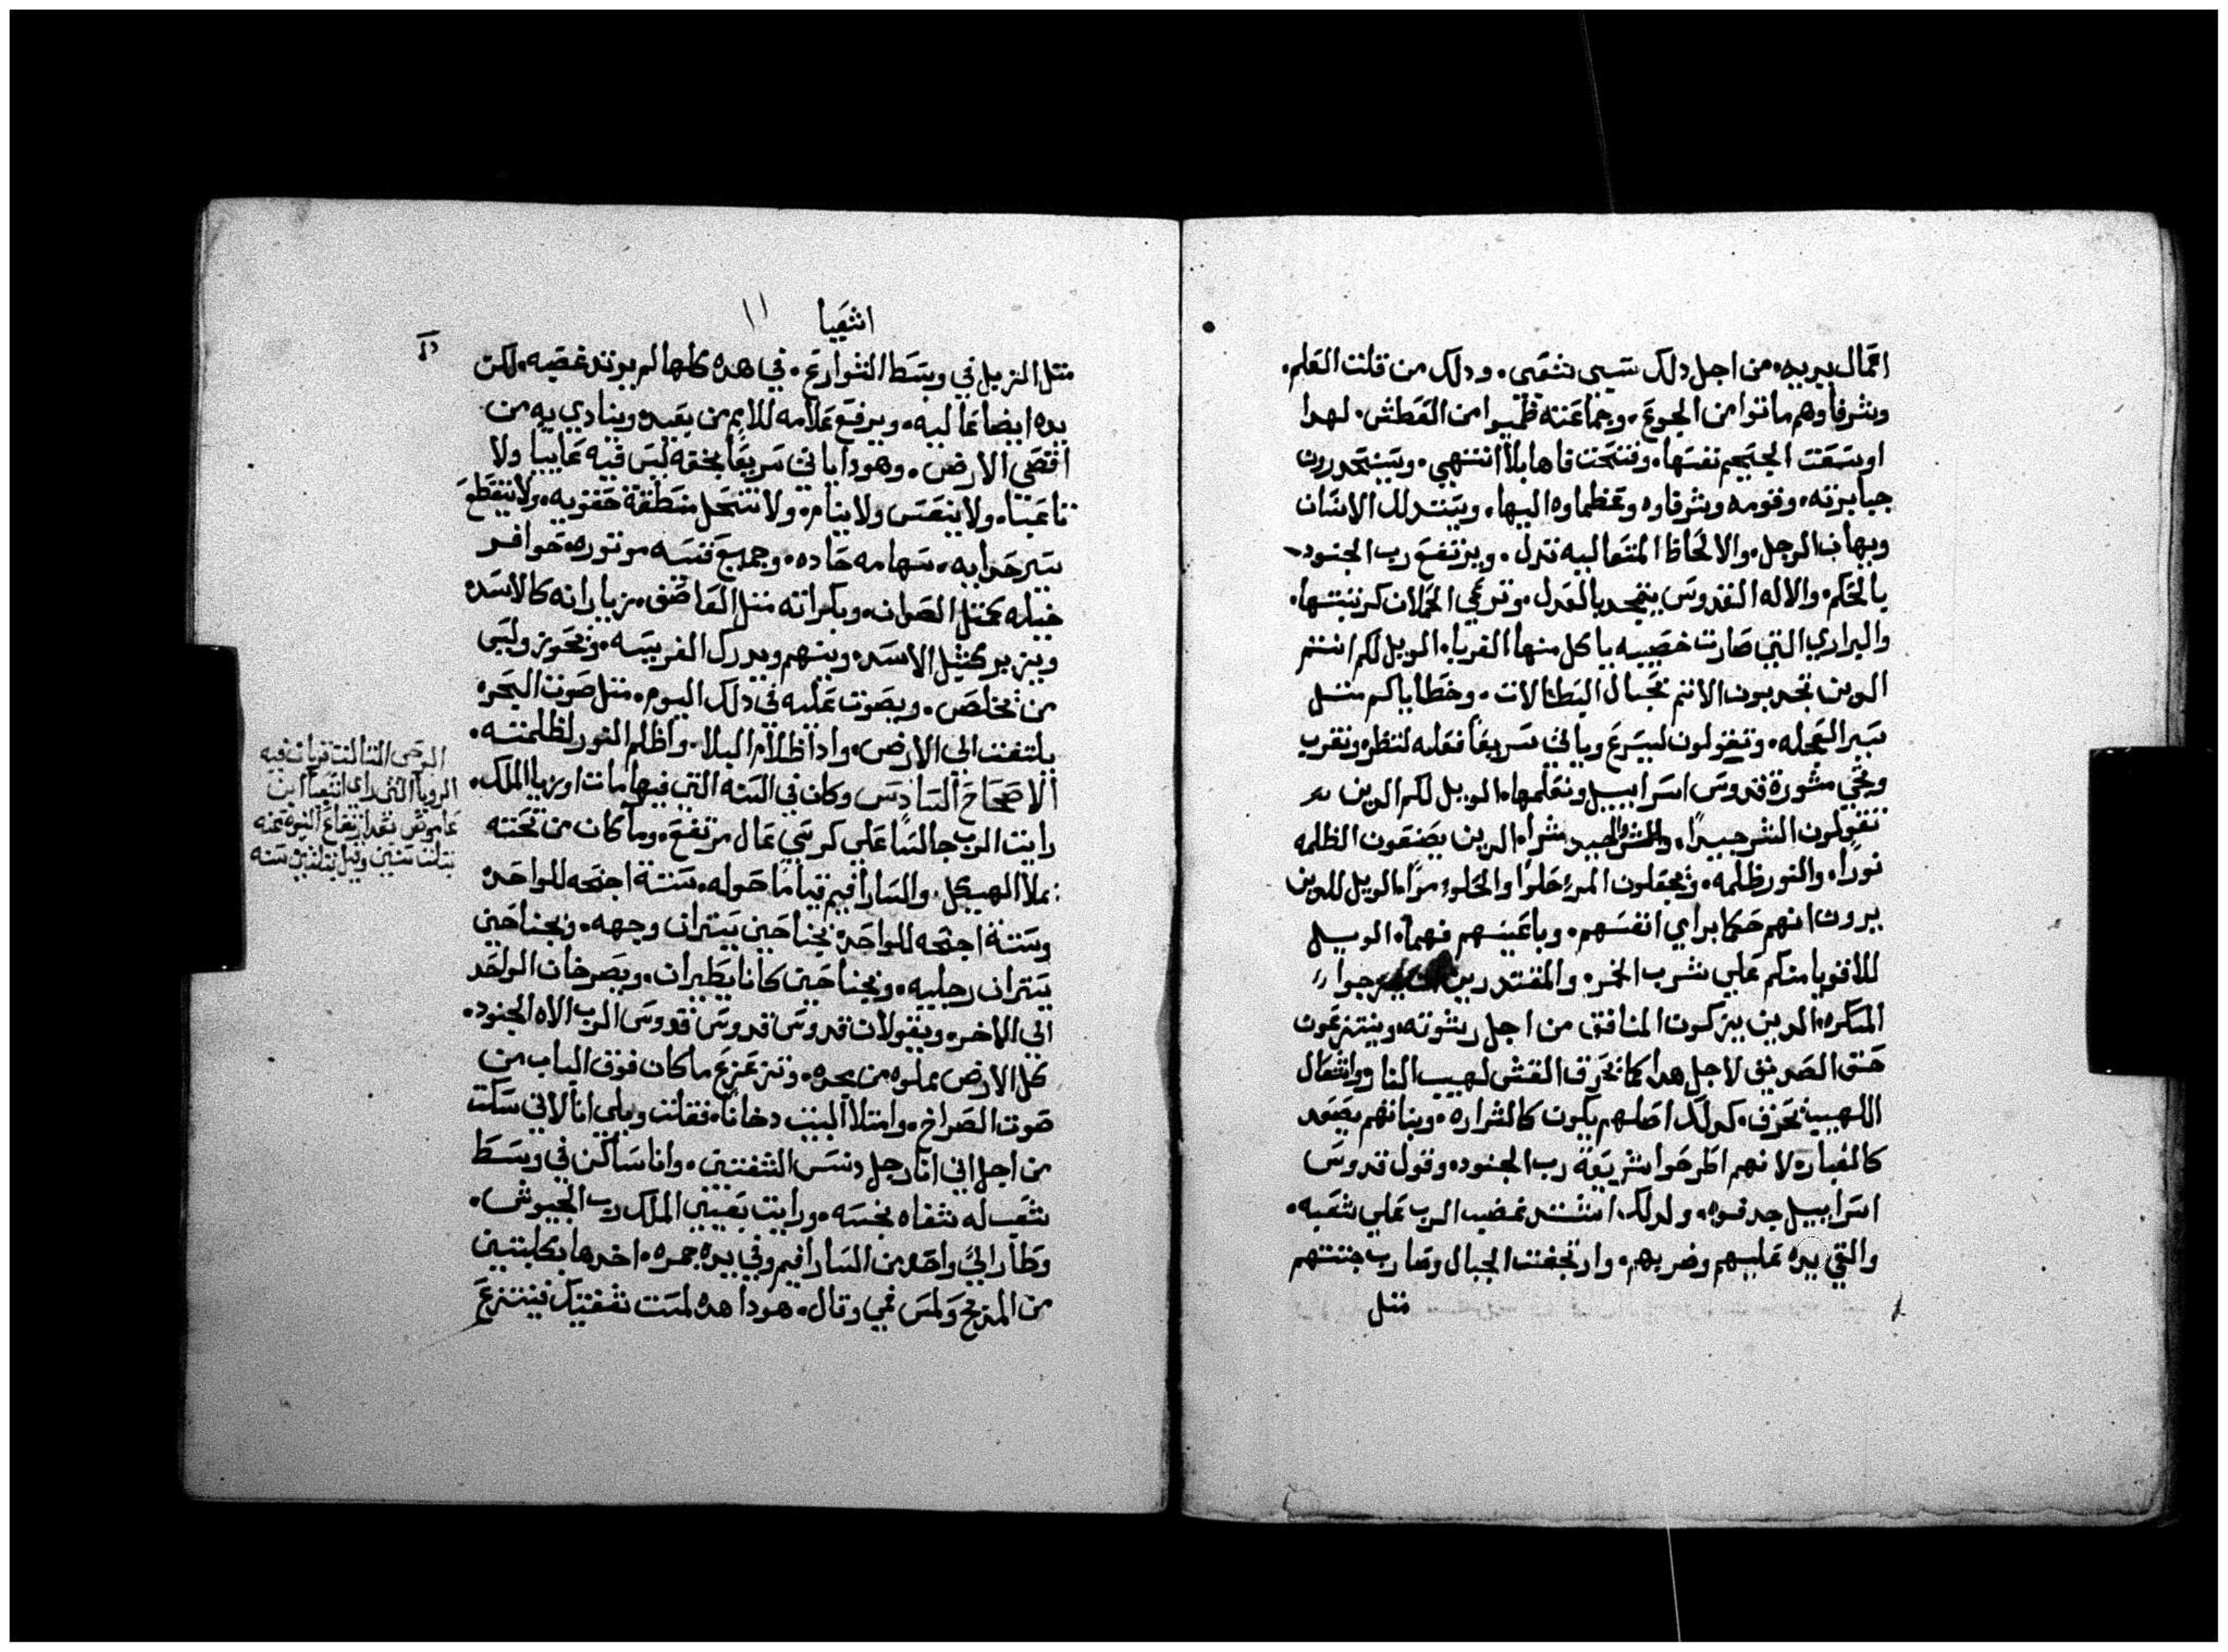 اعمال يديه. من اجل دلك سبى شعبى. ودلك من قلت العلم.
وشرفاوهم ماتوا من الجوع. وجماعته ظميوا من العطش. لهدا
اوسعت الجحيم نفسها. وفتحت فاها بلا انتهي. وسينحدرون
جبابرته. وقومه وشرفاوه وعظماوه اليها. ويتدلل الانسان
ويهان الرجل. والالحاظ المتعاليه تدل. ويرتفع رب الجنود
بالحكم. والاله القدوس يتمجد بالعدل. وترعي الحملان كرتبتها.
والبراري التي صارت خصبيه ياكل منها الغربا. الويل لكم انتم
الدين تجدبون الاثم بحبال البطالات. وخطاياكم مثل
سير العجله. وتقولون ليسرع وياتي سريعًا فعله لننظره وتقرب
وتجي مشورة قدوس اسراييل ونعلمها. الويل لكم الدين
تقولون الشر جييدًا. والجييد شرا. الدين يصنعون الظلمه
نورا. والنور ظلمه. وتجعلون المرء حلوا والحلوء مرًا. الويل للدين
يرون انهم حكما براي انفسهم. وباعينهم فهما. الويل
للاقويا منكم علي شرب الخمر. والمقتدرين يمزجوا
المسكره. الدين يزكون المنافق من اجل رشوته. وينتزعون
حق الصديق لاجل هدا كما تحرق القش لهيب النار واشعال
اللهيب تحرق. كدلك اصلهم يكون كالشراره. وبناتهم يصعد
كالغباره لانهم اطرحوا شريعة رب الجنود. وقول قدوس
اسراييل جدفوه. ولدلك اشتد غضب الرب علي شعبه.
والقي يده عليهم وضربهم. وارتجفت الجبال وصارت جثتهم
مثل
اشعيا ١١
مثل الزبل في وسط الشوارع. في هده كلها لم يرتد غضبه. لكن
يده ايضا عاليه. ويرفع علامه للامم من بعيد. وينادي به من
اقصي الارض. وهودا ياتي سريعًا بخفه ليس فيه عاييا ولا
تاعبا. ولا ينعس ولا ينام. ولا تنحل منطقة حقويه. ولا ينقطع
سير حدايه. سهامه حاده. وجميع قسيه موتوره. حوافر
خيله كمثل الصوان. وبكراته مثل العاصف. زيارانه كالاسد.
ويزير كمثل الاسد. وينهم ويدرك الفريسه. ويحوز وليس
من مخلص. ويصوت عليه في دلك اليوم. مثل صوت البحر.
يلتفت الي الارض. وادا ظلام البلا. واظلم النور لظلمته.
الاصحاح السادس وكان في السنه التي فيها مات اوزيا الملك.
رايت الرب جالسًا علي كرسي عال مرتفع. وما كان من تحته
يملا الهيكل. والسارافيم قيامًا حوله. ستة اجنحه للواحد.
وستة اجنحه للواحد. بجناحين يستران وجهه. وبجناحين
يستران رجليه. وبجناحين كانا يطيران. ويصرخان الواحد
الي الاخر. ويقولان قدوس قدوس قدوس الرب الاه الجنود.
كل الارض مملوه من مجده. وتزعزع ما كان فوق الباب من
صوت الصراخ. وامتلا البيت دخانا. فقلت ويلي انا لاني سكت
من اجل اني انا رجل دنس الشفتين. وانا ساكن في وسط
شعب له شفاه نجسه. ورايت بعيني الملك رب الجيوش.
وطار الي واحد من السارافيم وفي يده جمره. اخدها بكلبتين
من المدبح ولمس فمي وقال. هودا هده لمست شفتيك فينتزع
الوحى التالت تويان فيه
الرويا التى راى اشعيا ابن
عاموص بعد ارتفاع النبوه عنه
بتلت سنين وقيل بتلتين سنه